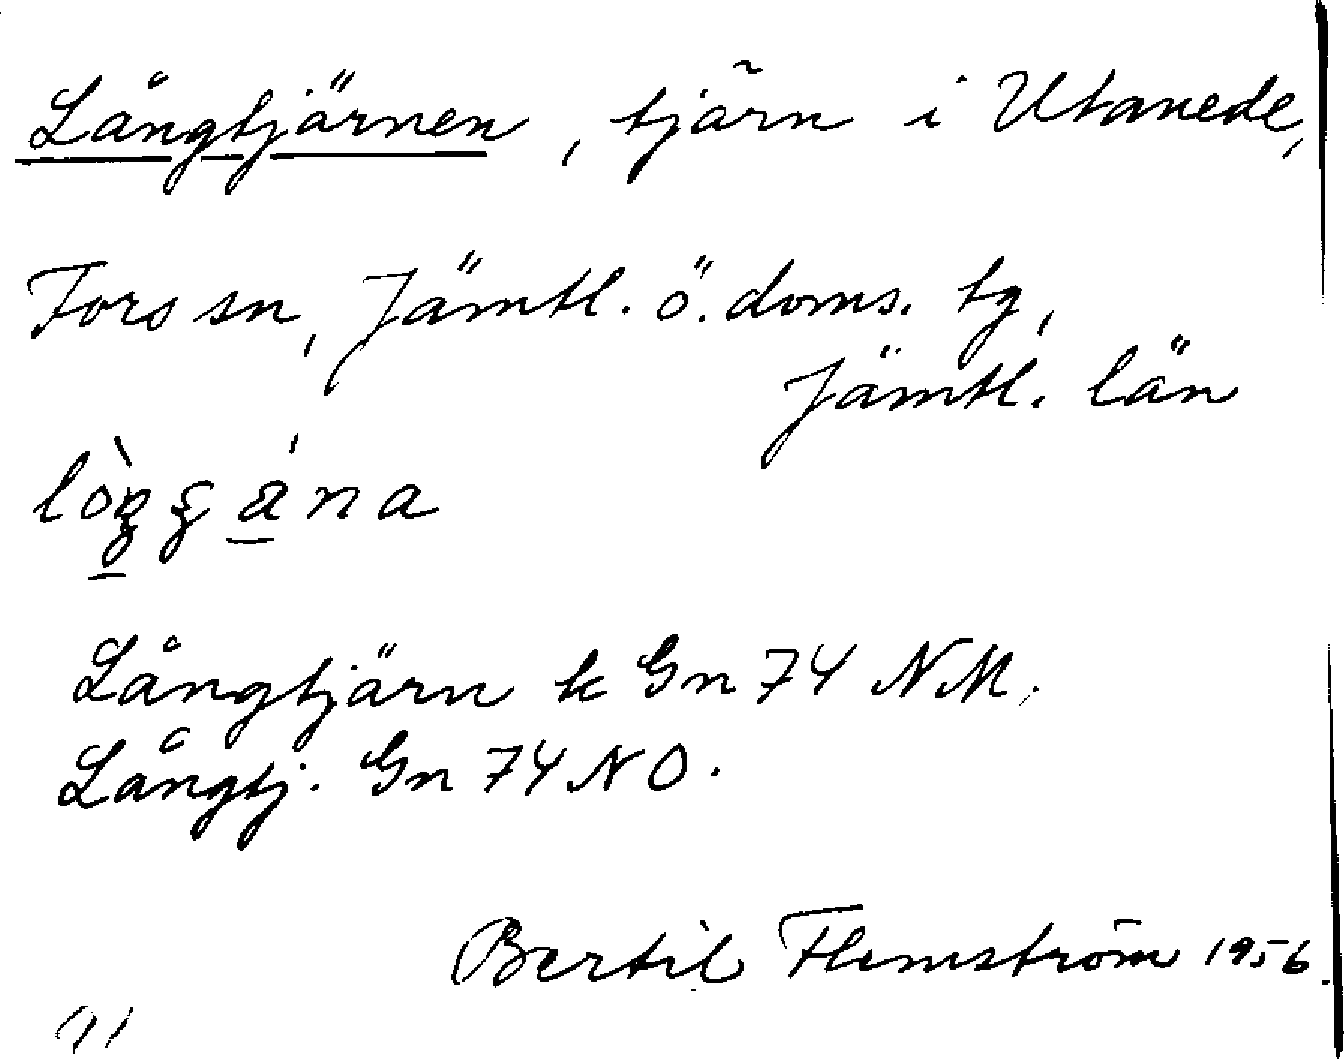 Långtjärnen, tjärn i Utanede,
Fors sn, Jämtl. ö. doms. tg,
Jämtl. län
Långtjärn k Gn 74 NM.
Långtj. Gn 74 NO.
Bertil Flemström 1956.